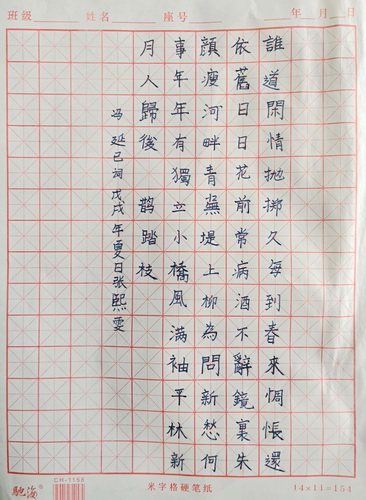 班级 姓名 座号 年 月 日
誰道閑情抛擲久每到春來惆悵還
依舊日日花前常病酒不辭鏡裏朱
顏瘦河畔青蕪堤上柳為問新愁何
事年年有獨立小橋風满袖平林新
月人歸後 鹊踏枝
冯延巳词戊戌年夏日张熙雯
驰海 CH-1158 米字格硬笔纸 14×11=154